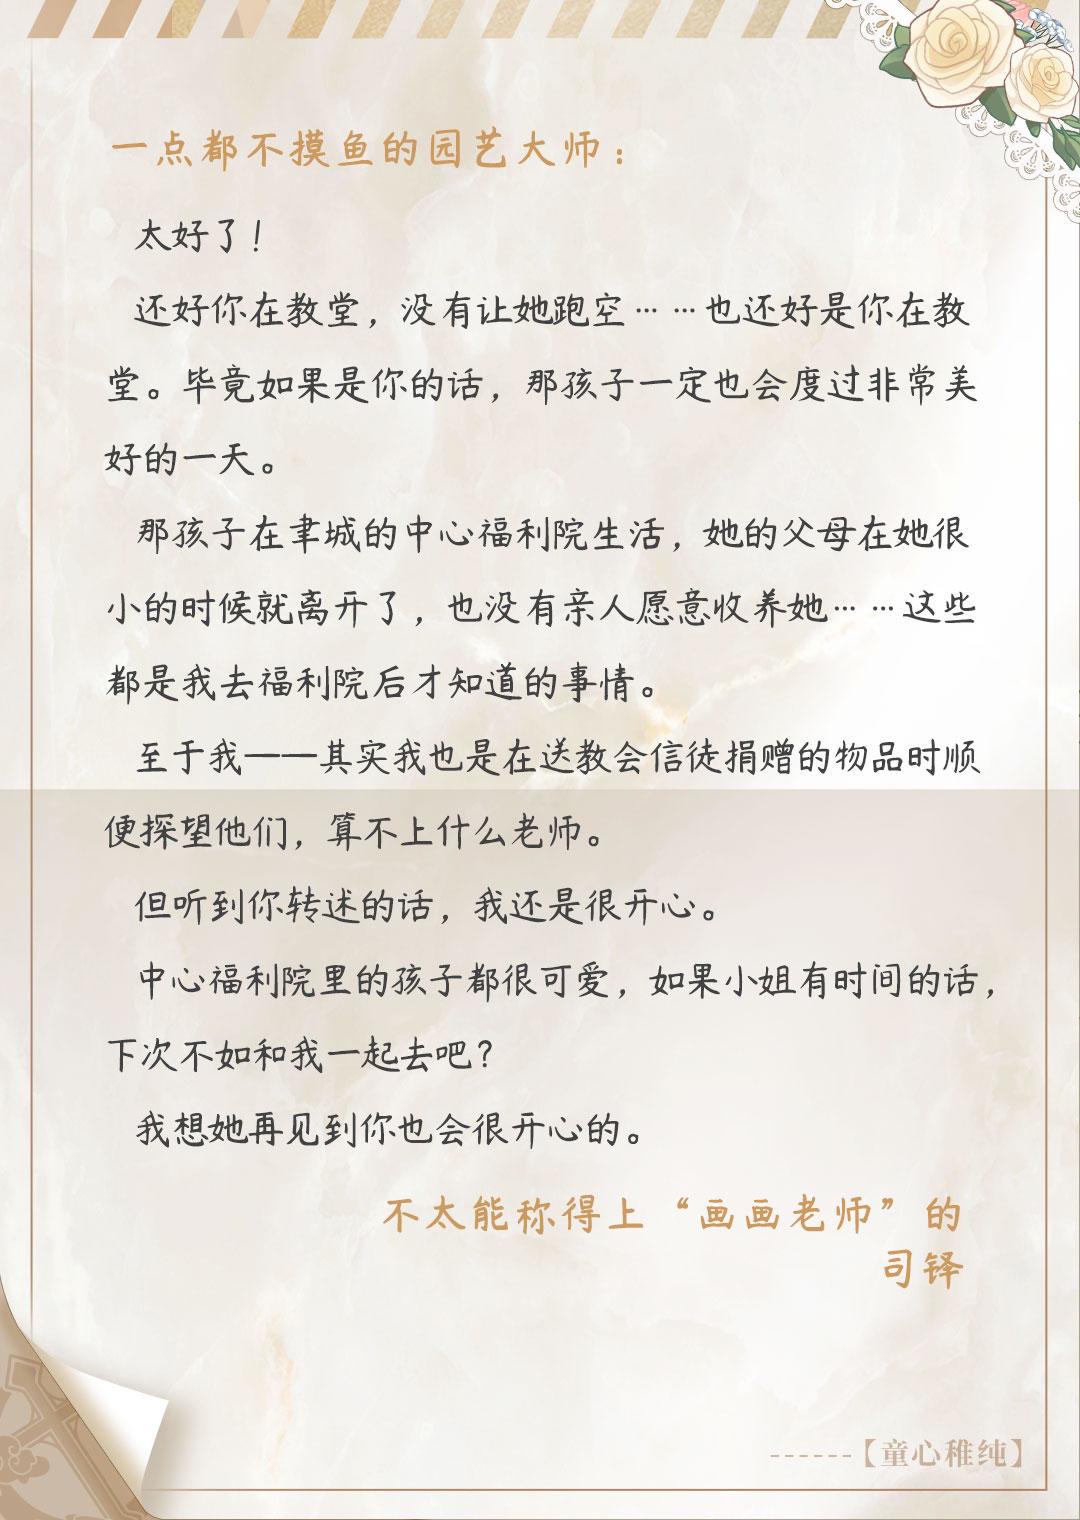 一点都不摸鱼的园艺大师：
太好了！
还好你在教堂，没有让她跑空……也还好是你在教
堂。毕竟如果是你的话，那孩子一定也会度过非常美
好的一天。
那孩子在聿城的中心福利院生活，她的父母在她很
小的时候就离开了，也没有亲人愿意收养她……这些
都是我去福利院后才知道的事情。
至于我——其实我也是在送教会信徒捐赠的物品时顺
便探望他们，算不上什么老师。
但听到你转述的话，我还是很开心。
中心福利院里的孩子都很可爱，如果小姐有时间的话，
下次不如和我一起去吧？
我想她再见到你也会很开心的。
不太能称得上“画画老师”的
司铎
------【童心稚纯】